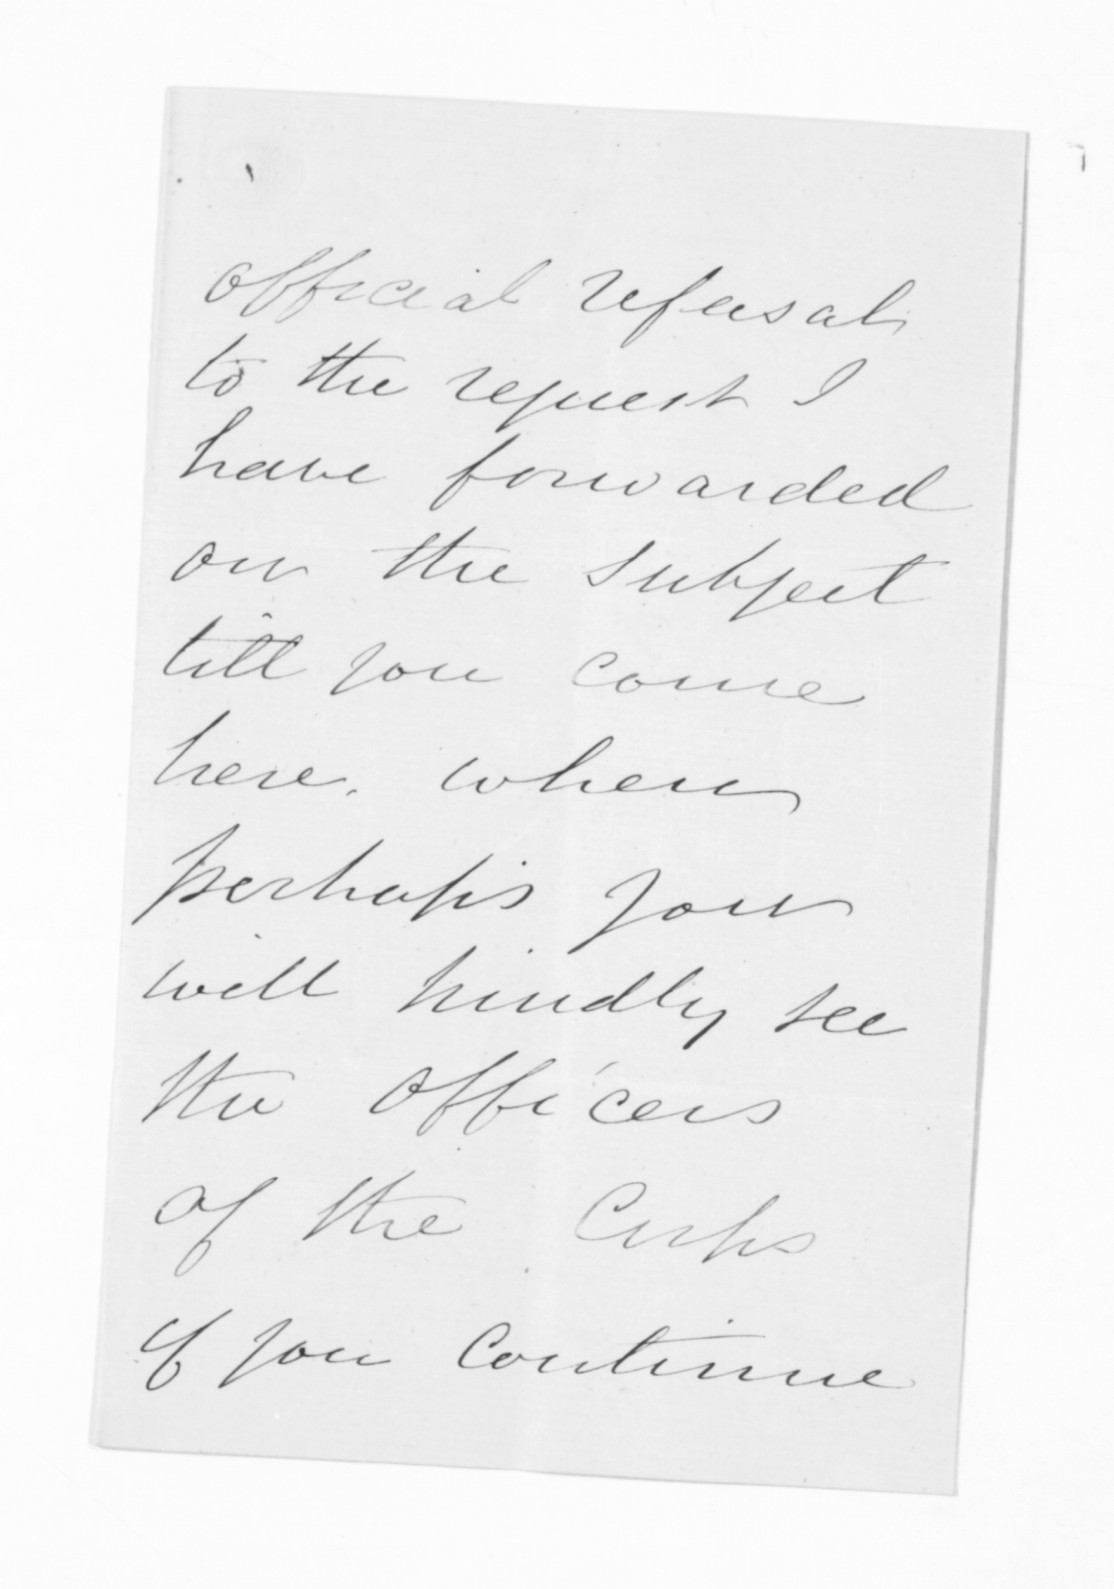 official refusal
to the request I
have forwarded
on the subject
till you come
here. when
perhaps you
will kindly see
the officers
of the Corps
if you continue